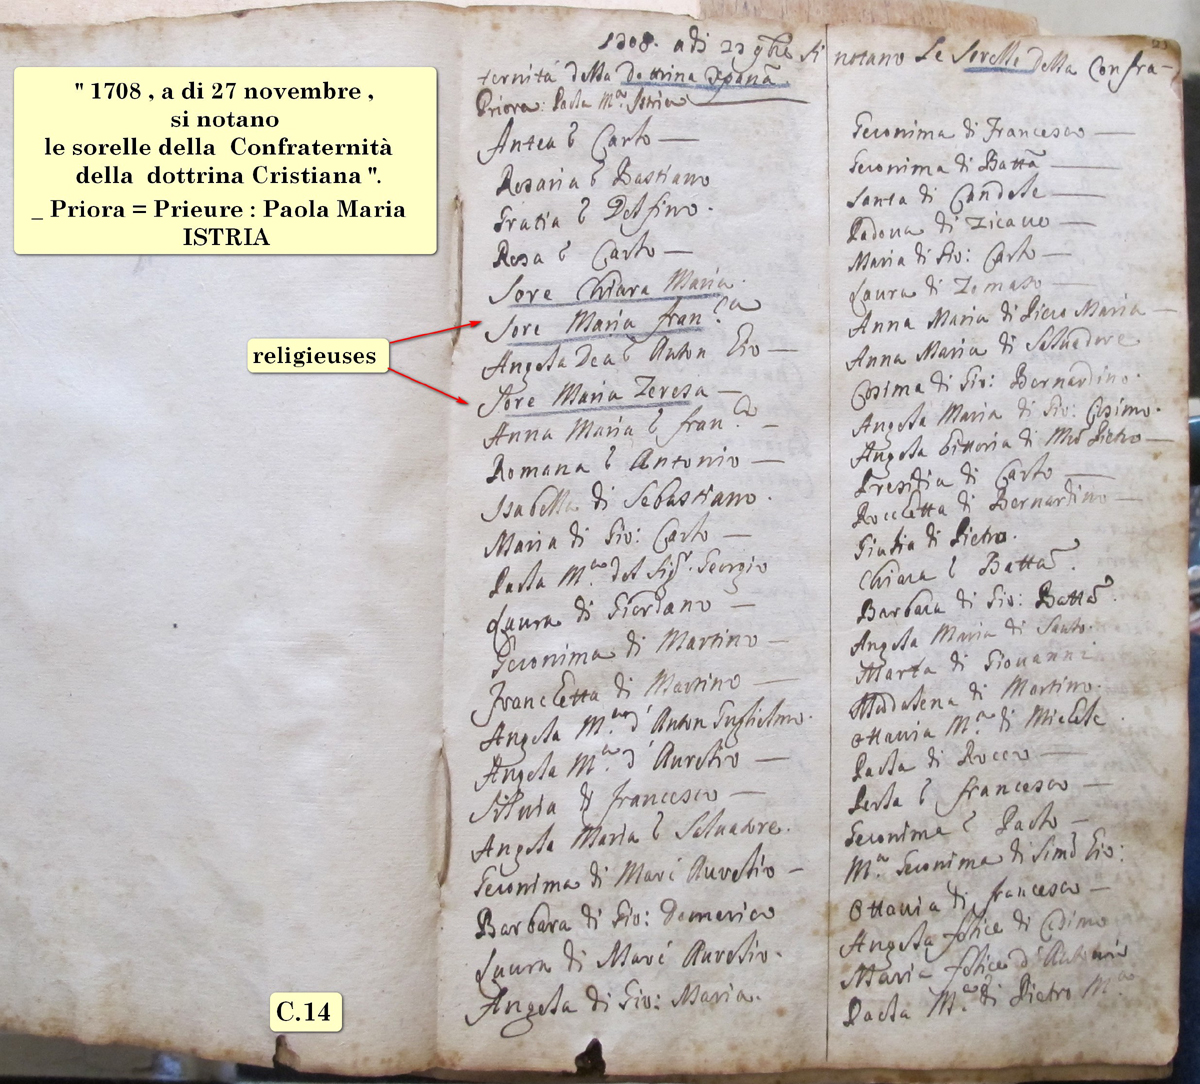 " 1708 , a di 27 novembre ,
si notano
le sorelle della Confraternità
della dottrina Cristiana ".
_ Priora = Prieure : Paola Maria
ISTRIA
religieuses
C.14
1708. adi 27 9bre si notano Le Sorelle della Confra-
ternità della Dottrina
Priora: Paola M.a Istria
Carlo
Rosaria Bastiano
Gratia Delfino.
Rosa Carlo
Sore Chiara Maria.
Sore Maria Fran.ca
Angela Anton Gio
Sore Maria Teresa
Anna Maria fran.co
Romana Antonio
Isabella di Sebastiano.
Maria di Gio: Carlo
Paola M.a del Sig.r Giorgio
Laura di Giordano
Geronima di Martino
Francetta di Martino
Angela M.a d'Anton Guglielmo.
Angela M.a d'Aurelio
Silvia di francesco
Angela Maria Salvadore.
Geronima di Marc' Aurelio
Barbara di Gio: Domenico
Laura di Marc' Aurelio.
Angela di Gio: Maria.
Geronima di Francesco
Geronima di Batta
Santa di
Padoua di
Maria di Gio: Carlo
Laura di Tomaso
Anna Maria di Piero Maria
Anna Maria di Salvadore
Cosima di Gio: Bernardino.
Angela Maria di Gio: Cosimo.
Angela Vittoria di Pietro
di Carlo
Roccetta di Bernardino
Giulia di Pietro.
Chiara Batta.
Barbara di Gio: Batta.
Angela Maria di Santo.
Marta di Giouanni
Madalena di Martino.
Ottavia M.a di Michele.
Paola di Rocco
Perla francesco
Geronima Paolo
M.a Geronima di Gio:
Ottauia di francesco
Angela felice di Cosimo
Maria felice d'Antonio
Paola M.a di Pietro M.a